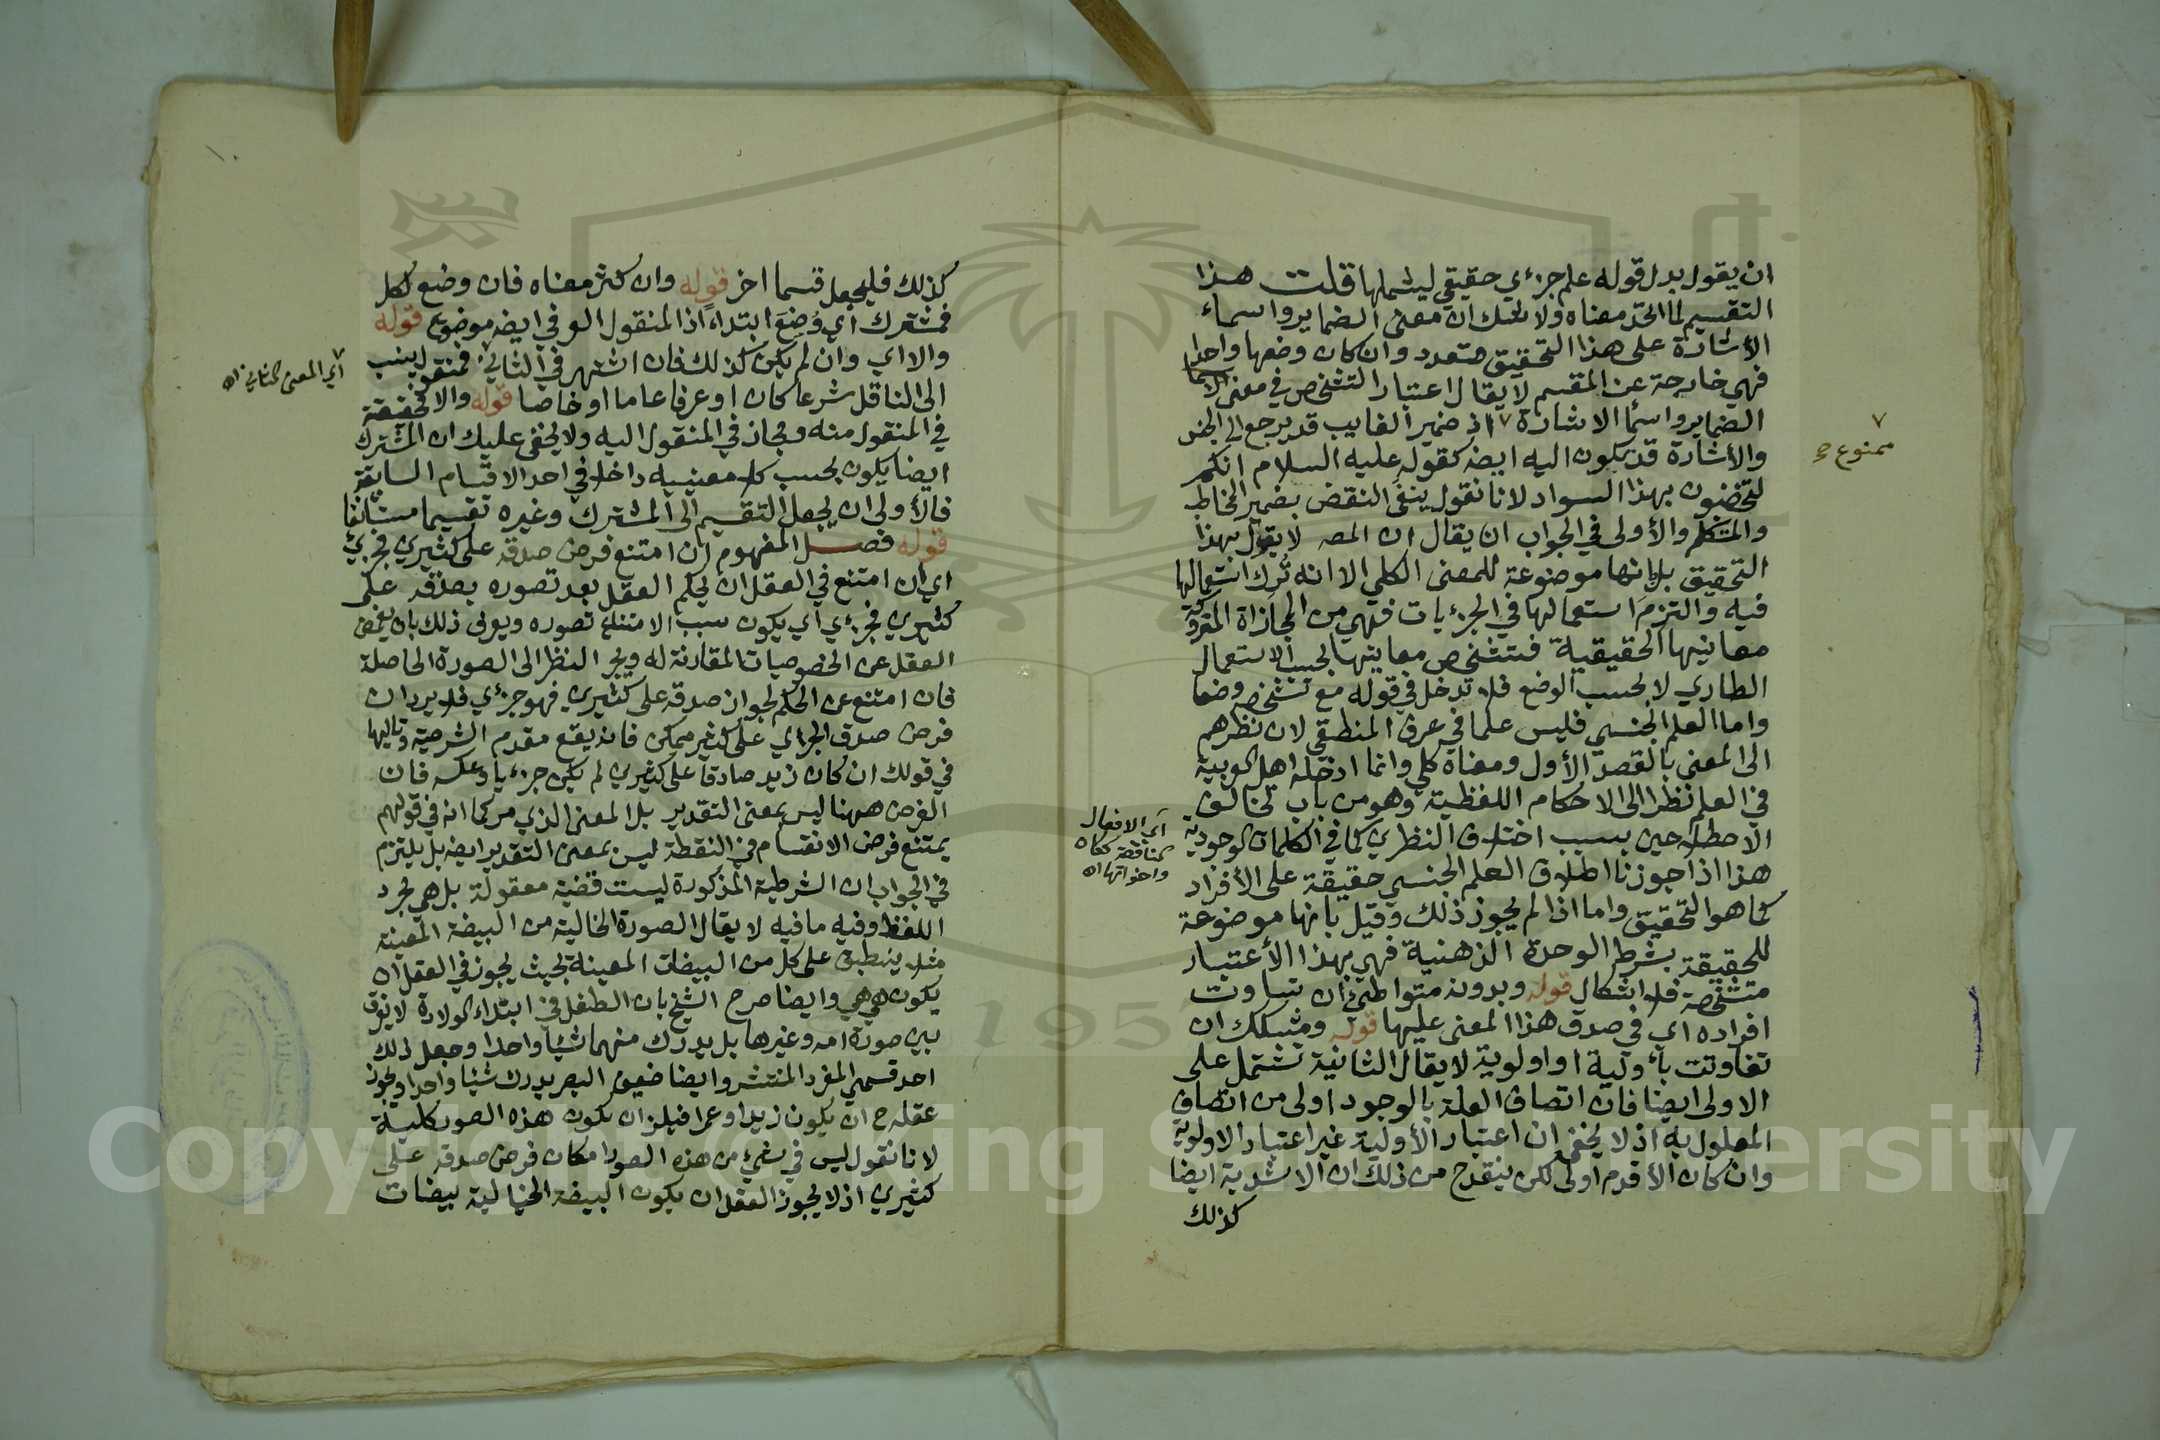 ان يقول بدل قوله علم جزءي حقيقي ليشملها قلت هذا
التقسيم لما اتحد معناه ولا شك ان معنى الضماير واسماء
الأشارة على هذا التحقيق متعدد وان كان وضعها واحدا
فهي خارجة عن المقسم لا يقال اعتبار التشخص في معنى
الضماير واسما الاشارة ٧ اذ ضمير الغايب قد يرجع الى الجنس
والأشارة قد يكون اليه ايضه كقوله عليه السلام انكم
لتختضبون بهذا السواد لانا نقول ينفى النقض بضمير المخاطب
والمتكلم والأولى في الجواب ان يقال ان المصه لا يقول بهذا
التحقيق بل بانها موضوعة للمعنى الكلي الا انه تُرك استعمالها
فيه والتزم استعمالها في الجزءيات فهي من المجازاة المتروكة
معانيها الحقيقية فتشخص معاينها بحسب الاستعمال
الطاري لا بحسب الوضع فلا تدخل في قوله مع تشخصه وضعا
واما العلم الجنسي فليس علما في عرف المنطقي لان نظرهم
الى المعنى بالقصد الأول ومعناه كلي وانما ادخله اهل العربية
في العلم نظرا الى الاحكام اللفظية وهو من باب تخالف
الاصطلاحين بسبب اختلاف النظرين كما في الكلمات الوجودية
هذا اذا جوزنا اطلاق العلم الجنسي حقيقة على الأفراد
كما هو التحقيق واما اذا لم يجوز ذلك وقيل بانها موضوعة
للحقيقة بشرط الوحدة الذهنية فهي بهذا الأعتبار
متشخصة فلا اشكال قوله وبدونه متواطئ ان تساوت
افراده اي في صدق هذا المعنى عليها قوله ومشكك ان
تفاوتت بأولية او اولوية لا يقال الثانية تشتمل على
الاولى ايضا فان اتصاف العلة بالوجود اولى من اتصاف
المعلول به اذ لا يخفى ان اعتبار الأولية غير اعتبار الاولوية
وان كان الأقدم اولى لكن ينقدح من ذلك ان الاشدية ايضا
كذلك
٧
ممنوع
اي الافعال
الناقصة ككان
واخواتها اه
كذلك فليجعل قسما اخر قوله وان كثر معناه فان وضع لكل
فمشترك اي وُضِعَ ابتداءً اذ المنقول الى في ايضه موضوع قوله
والا اي وان لم يكن كذلك فان اشتهر في الثاني ٧ فمنقول ينسب
الى الناقل شرعا كان او عرفا عاما او خاصا قوله والا فحقيقة
في المنقول منه ومجاز في المنقول اليه ولا يخفى عليك ان المشترك
ايضا يكون بحسب كلا معنييه داخلا في احد الاقسام السابقة
فالأولى ان يجعل التقسيم الى المشترك وغيره تقسيما مستأنفا
قوله فصل المفهوم ان امتنع فرض صدقه على كثيرين فجزئي
اي ان امتنع في العقل ان يحكم العقل بعد تصوره بصدقه على
كثيرين فجزءي اي يكون سبب الامتناع تصوره ويعرف ذلك بان يغمض
العقل عن الخصوصيات المقارنة له ويجر النظر الى الصورة الحاصلة
فان امتنع عن الحكم لجواز صدقه على كثيرين فهو جزءي فلا يرد ان
فرض صدق الجزءي على كثير ممكن فانه يقع مقدم الشرطية وتاليها
في قولك ان كان زيد صادقا على كثيرين لم يكن جزءيا وعكسه فان
الفرض ههنا ليس بمعنى التقدير بل المعنى الذي مر كما انه في قولهم
يمتنع فرض الانقسام في النقطة ليس بمعنى التقدير ايضه بل يلتزم
في الجواب ان الشرطية المذكورة ليست قضية معقولة بل هي مجرد
اللفظ وفيه ما فيه لا يقال الصورة الخالية من البيضة المعينة
مثلا ينطبق على كل من البيضات المعينة بحيث يجوز في العقل ان
يكون هي هي وايضا صرح الشيخ بان الطفل في ابتداء الولادة لا يفرق
بين صورة امه وغيرها بل يدرك منهما شيا واحدا وجعل ذلك
احد قسمي المفرد المنتشر وايضا ضعيف البصر يدرك شيئا واحدا ويجوز
عقله ح ان يكون زيدا وعمرا فيلزم ان يكون هذه الصور كلية
لانا نقول ليس في شيء من هذه الصور امكان فرض صدقه على
كثيرين اذ لا يجوز العقل ان يكون البيضة الخيالية بيضات
اي المعنى الثاني اه
١٠
Copyright © King Saud University
1957